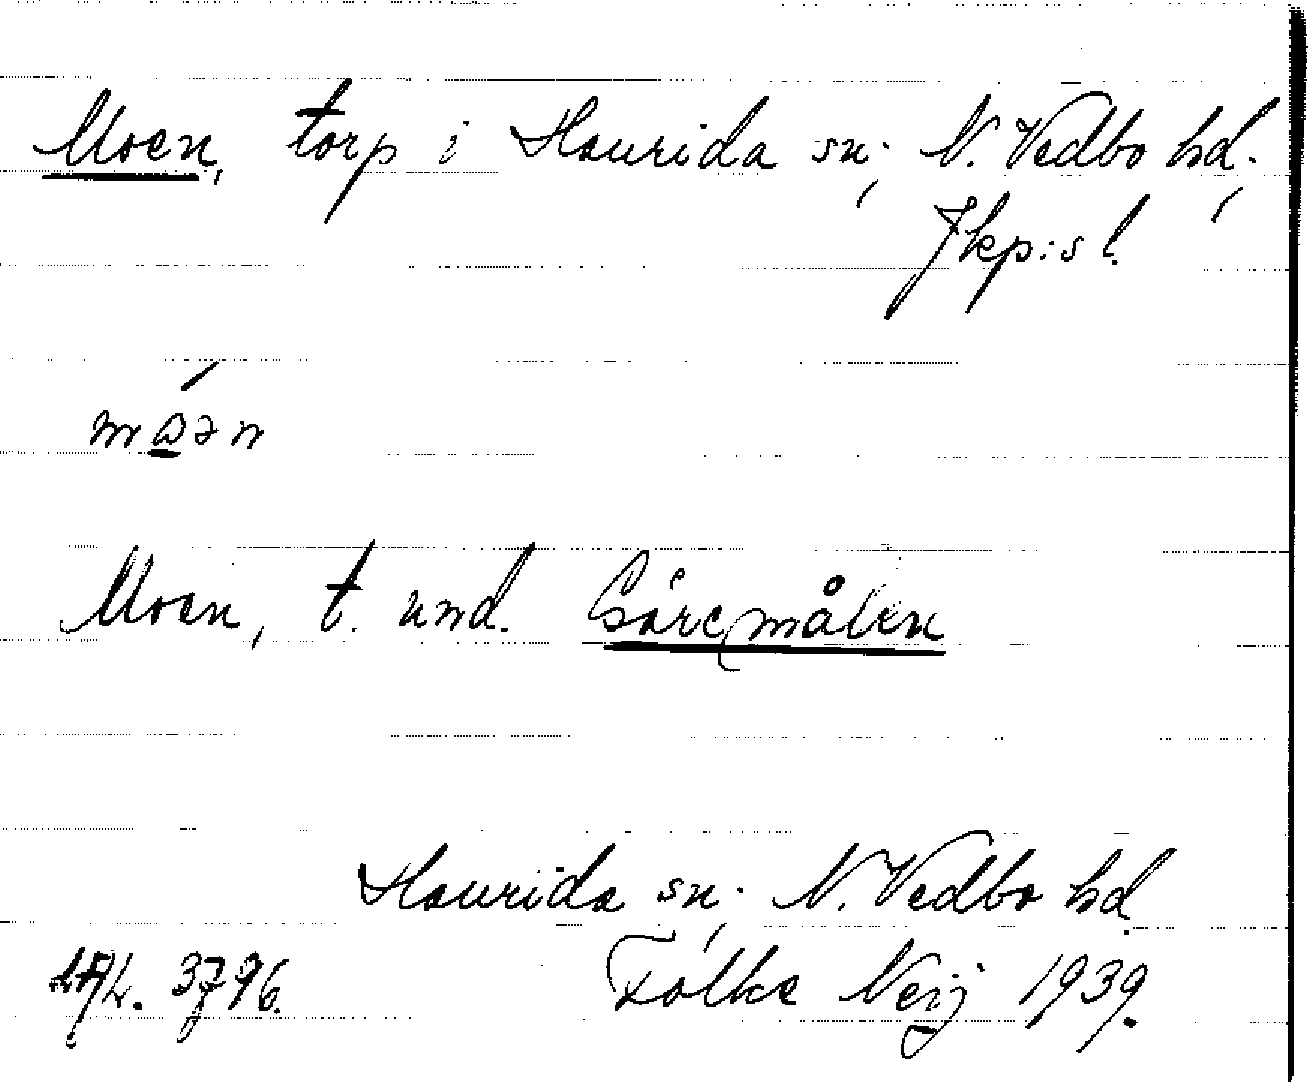 Moen, torp i Haurida sn; N. Vedbo hd.,
Jkp:s l.
Moen, t. und. Gårçmålen
Haurida sn. N. Vedbo hd.
3796. Folke Neij 1939.